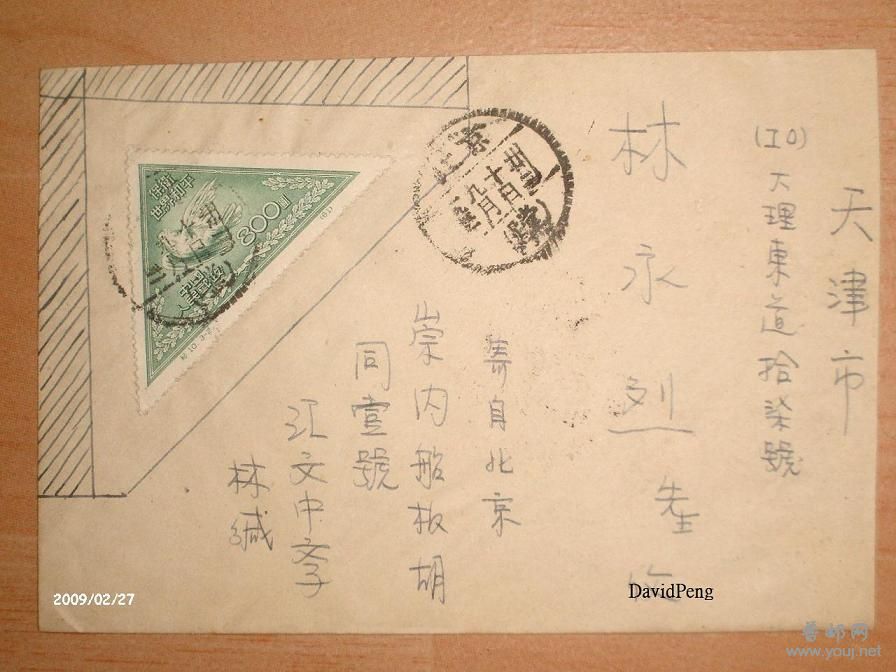 天津市
(10) 大理東道拾柒號
林永烈先生
寄自北京
崇内船板胡
同壹號
汇文中学
林緘
保衛世界和平
800
北京
2009/02/27
DavidPeng
普邮网
www.youj.net